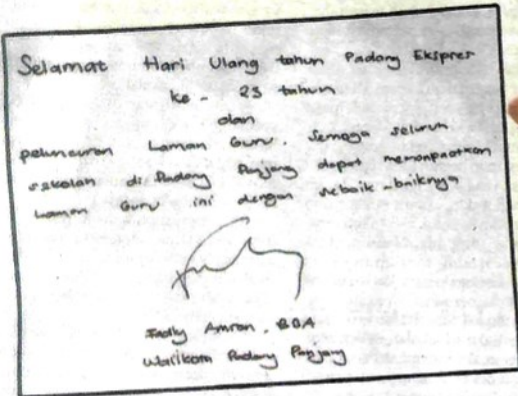 Selamat Hari Ulang tahun Padang Ekspres
ke - 23 tahun
dan
peluncuran Laman Guru. Semoga seluruh
sekolah di Padang Panjang dapat memanpaatkan
Laman Guru ini dengan sebaik-baiknya
Fadly Amran, BBA
Walikota Padang Panjang